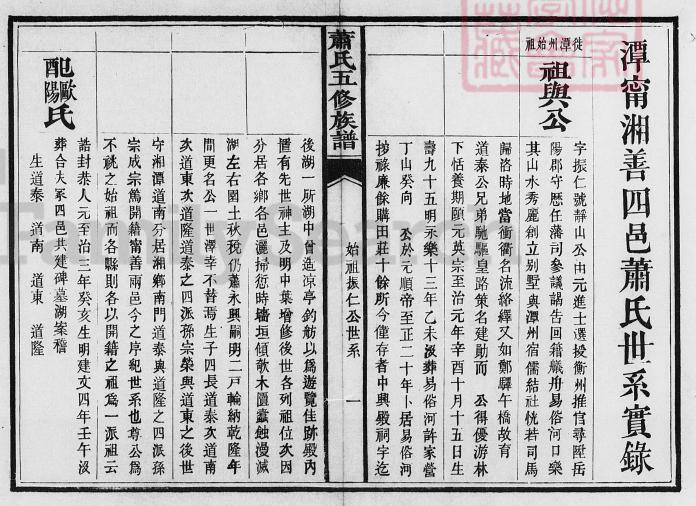 潭甯湘善四邑蕭氏世系實錄
徙潭州始祖
祖與公
字振仁號靜山公由元進士選授衡州推官尋陞岳
陽郡守歷任藩司參議謁告回籍艤舟易俗河口樂
其山水秀麗創立別墅與潭州宿儒結社恍若司馬
歸洛時地當衡衝名流絡繹又如鄭驛午橋故育
道泰公兄弟馳驅皇路策名建勛而 公得優游林
下恬養期頤元英宗至治元年辛酉十月十五日生
壽九十五明永樂十三年乙未歿葬易俗河許家營
丁山癸向 公於元順帝至正二十年卜居易俗河
捗祿廉餘購田莊十餘所今僅存者中興殿祠宇迄
蕭氏五修族譜
始祖振仁公世系
一
後湖一所湖中曾造涼亭釣舫以爲遊覽佳跡殿內
舊有先世神主及明中葉增修後世各列祖位次因
分居各鄉各邑灑掃愆時墻垣傾欹木讀蠹蝕漫滅
湖左右園土秋稅仍蕭永興嗣明二戸輸納乾隆年
間更名公一世澤幸不替焉生子四長道泰次道南
次道東次道隆道泰之四派孫宗榮與道東之後世
守湘潭道南分居湘鄉南門道泰與道隆之四派孫
宗成宗篤開籍甯善兩邑今之序紀世系也尊公爲
不祧之始祖而各縣則各以開籍之祖爲一派祖云
配歐陽氏
誥封恭人元至治三年癸亥生明建文四年壬午歿
葬合夫冢四邑共建碑墓湖案稽
生道泰 道南 道東 道隆